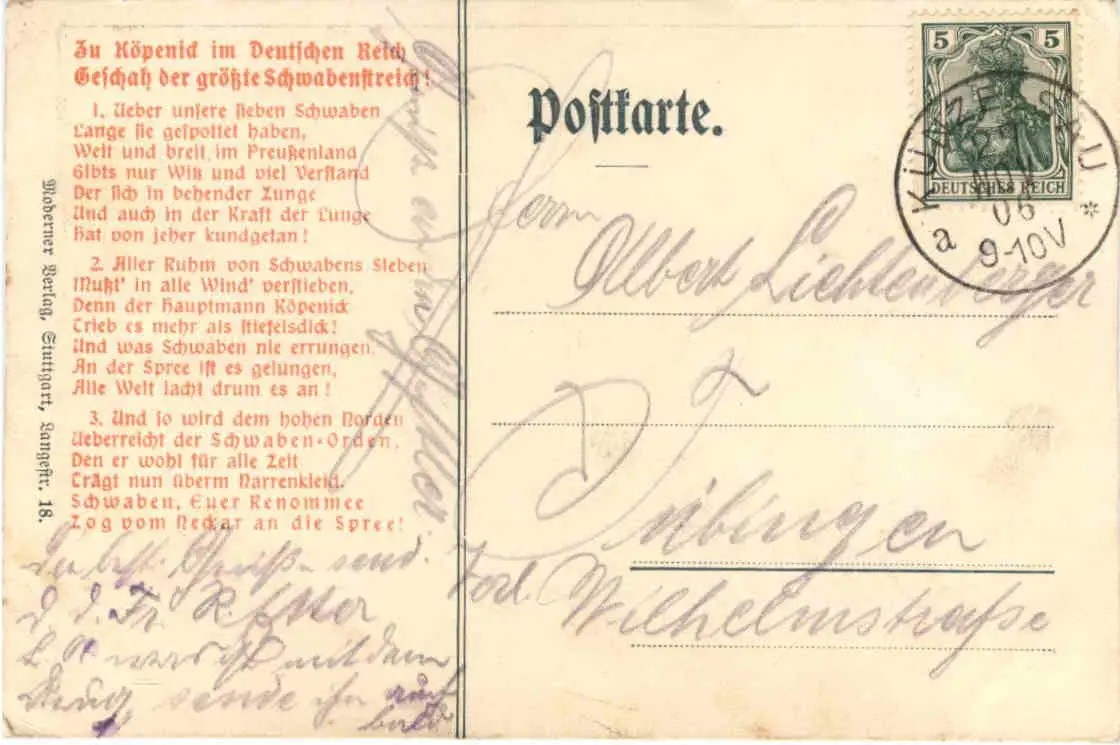 Zu Köpenick im Deutschen Reich
Geschah der größte Schwabenstreich!
1. Ueber unsere sieben Schwaben
Lange sie gespottet haben,
Weit und breit im Preußenland
Gibts nur Witz und viel Verstand
Der sich in behender Zunge
Und auch in der Kraft der Lunge
Hat von jeher kundgetan!
2. Aller Ruhm von Schwabens Sieben
Mußt' in alle Wind' verstieben,
Denn der Hauptmann Köpenick
Trieb es mehr als stiefelsdick!
Und was Schwaben nie errungen,
An der Spree ist es gelungen,
Alle Welt lacht drum es an!
3. Und so wird dem hohen Norden
Ueberreicht der Schwaben-Orden,
Den er wohl für alle Zeit
Trägt nun überm Narrenkleid.
Schwaben, Euer Renommee
Zog vom Neckar an die Spree!
Moderner Verlag, Stuttgart, Langestr. 18.
send.
d. Fr. R.
mit dem
sende ihn auch
bald
Postkarte.
5 5
DEUTSCHES REICH
KÜNZELSAU
NOV
06
9-10V
a
Herrn
Albert Lichtenberger
Tübingen
Wilhelmstraße